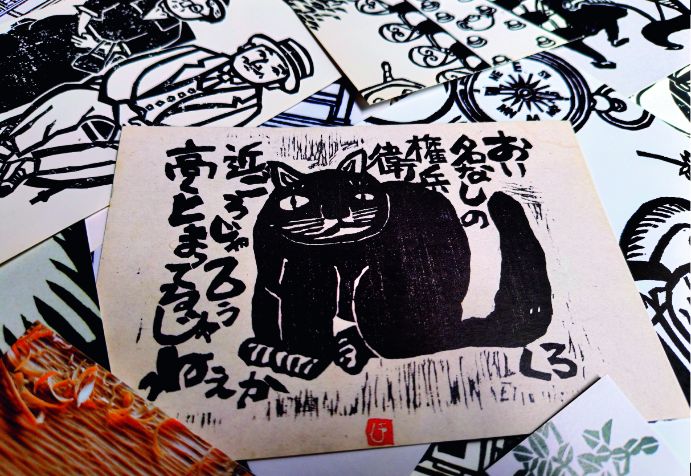 おい
名なしの
権兵
衛
近ごろじゃ乙う
高くとまってるじゃ
ねえか
くろ